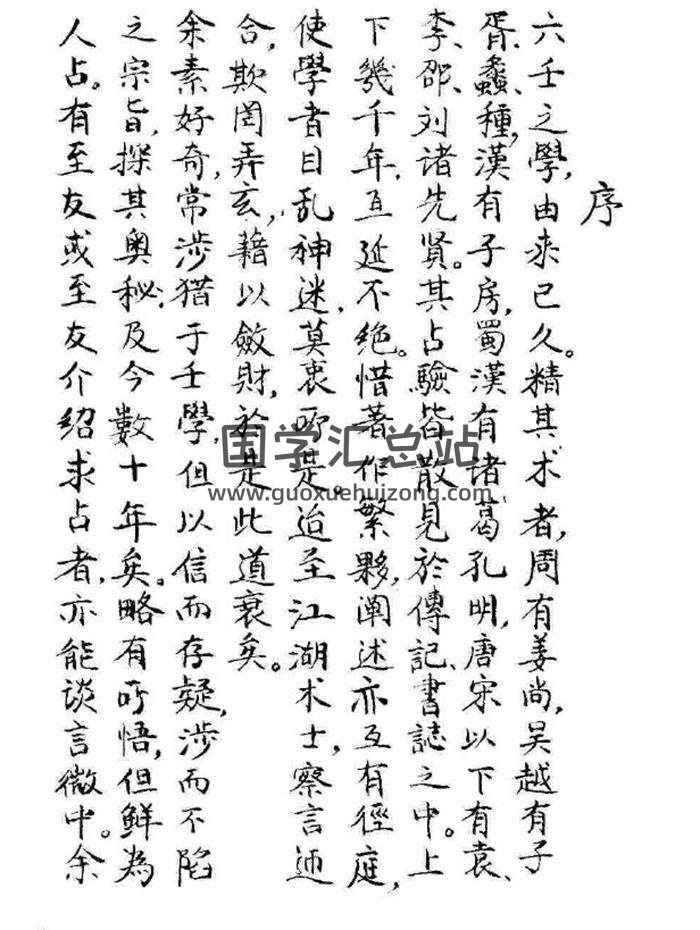 序
六壬之學，由来已久。精其术者，周有姜尚，吴越有子
胥、蠡、種，漢有子房，蜀漢有诸葛孔明，唐宋以下有袁、
李、邵、刘诸先贤。其占驗皆散見於傳記、書誌之中。上
下幾千年，亙延不绝。惜著作繁夥，阐述亦互有徑庭，
使學者目乱神迷，莫衷所是。迨至江湖术士，察言迊
合，欺罔弄玄，藉以斂財，於是此道衰矣。
余素好奇，常涉猎于壬學，但以信而存疑，涉而不陷
之宗旨，探其奥秘，及今數十年矣。略有所悟，但鲜為
人占。有至友或至友介绍求占者，亦能谈言微中。余
国学汇总站
www.guoxuehuizong.com